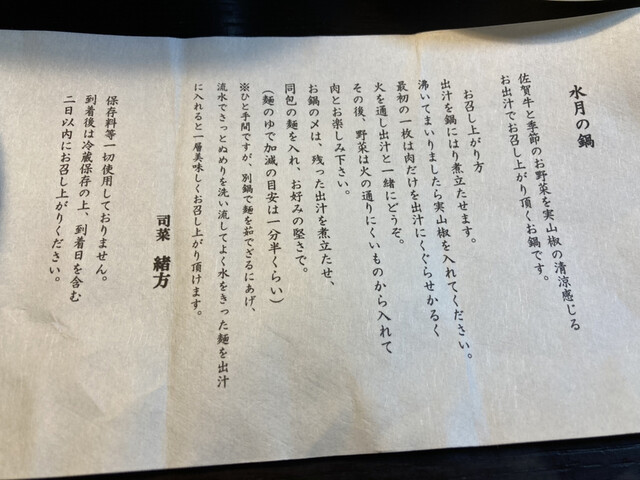 水月の鍋
佐賀牛と季節のお野菜を実山椒の清涼感じる
お出汁でお召し上がり頂くお鍋です。
お召し上がり方
出汁を鍋にはり煮立たせます。
沸いてまいりましたら実山椒を入れてください。
最初の一枚は肉だけを出汁にくぐらせかるく
火を通し出汁と一緒にどうぞ。
その後、野菜は火の通りにくいものから入れて
肉とお楽しみ下さい。
お鍋の〆は、残った出汁を煮立たせ、
同包の麺を入れ、お好みの堅さで。
(麺のゆで加減の目安は一分半くらい)
※ひと手間ですが、別鍋で麺を茹でざるにあげ、
流水でさっとぬめりを洗い流してよく水をきった麺を出汁
に入れると一層美味しくお召し上がり頂けます。
司菜 緒方
保存料等一切使用しておりません。
到着後は冷蔵保存の上、到着日を含む
二日以内にお召し上がりください。